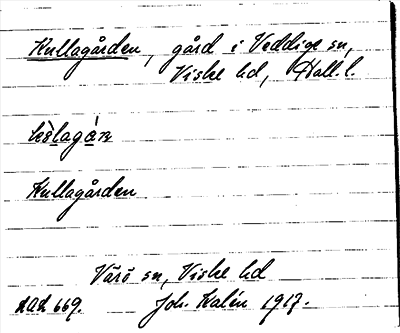 Kullagården, gård i Veddige sn,
Viske hd, Hall. l.
Kullagården
Värö sn, Viske hd
AAD 669. Joh. Kalén 1917.